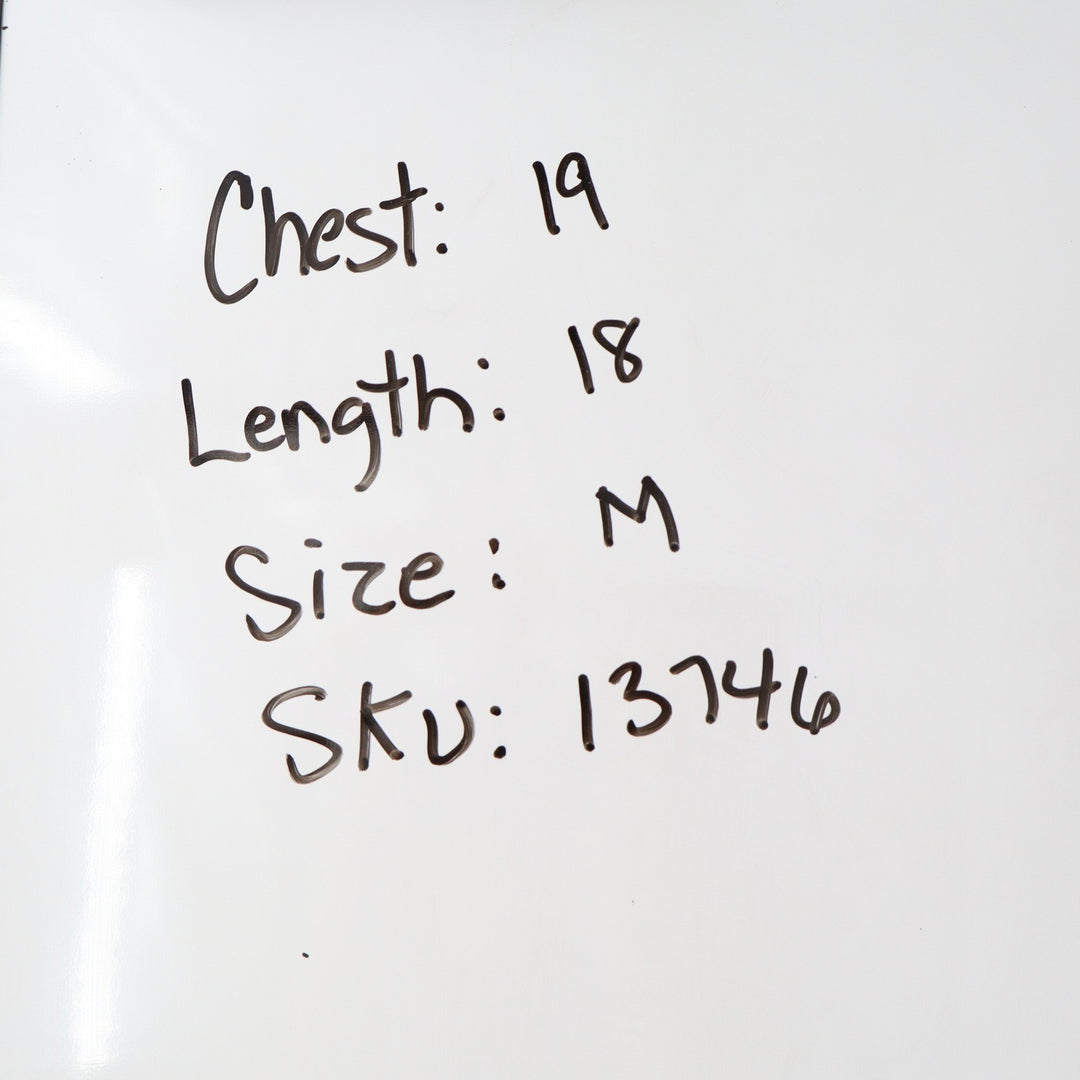 Chest: 19
Length: 18
Size: M
SKU: 13746